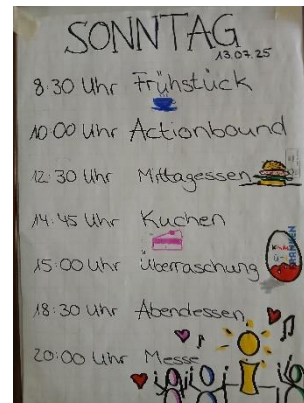 SONNTAG
13.07.25
8:30 Uhr Frühstück
10:00 Uhr Actionbound
12:30 Uhr Mittagessen
14:45 Uhr Kuchen
15:00 Uhr Überraschung
18:30 Uhr Abendessen
20:00 Uhr Messe